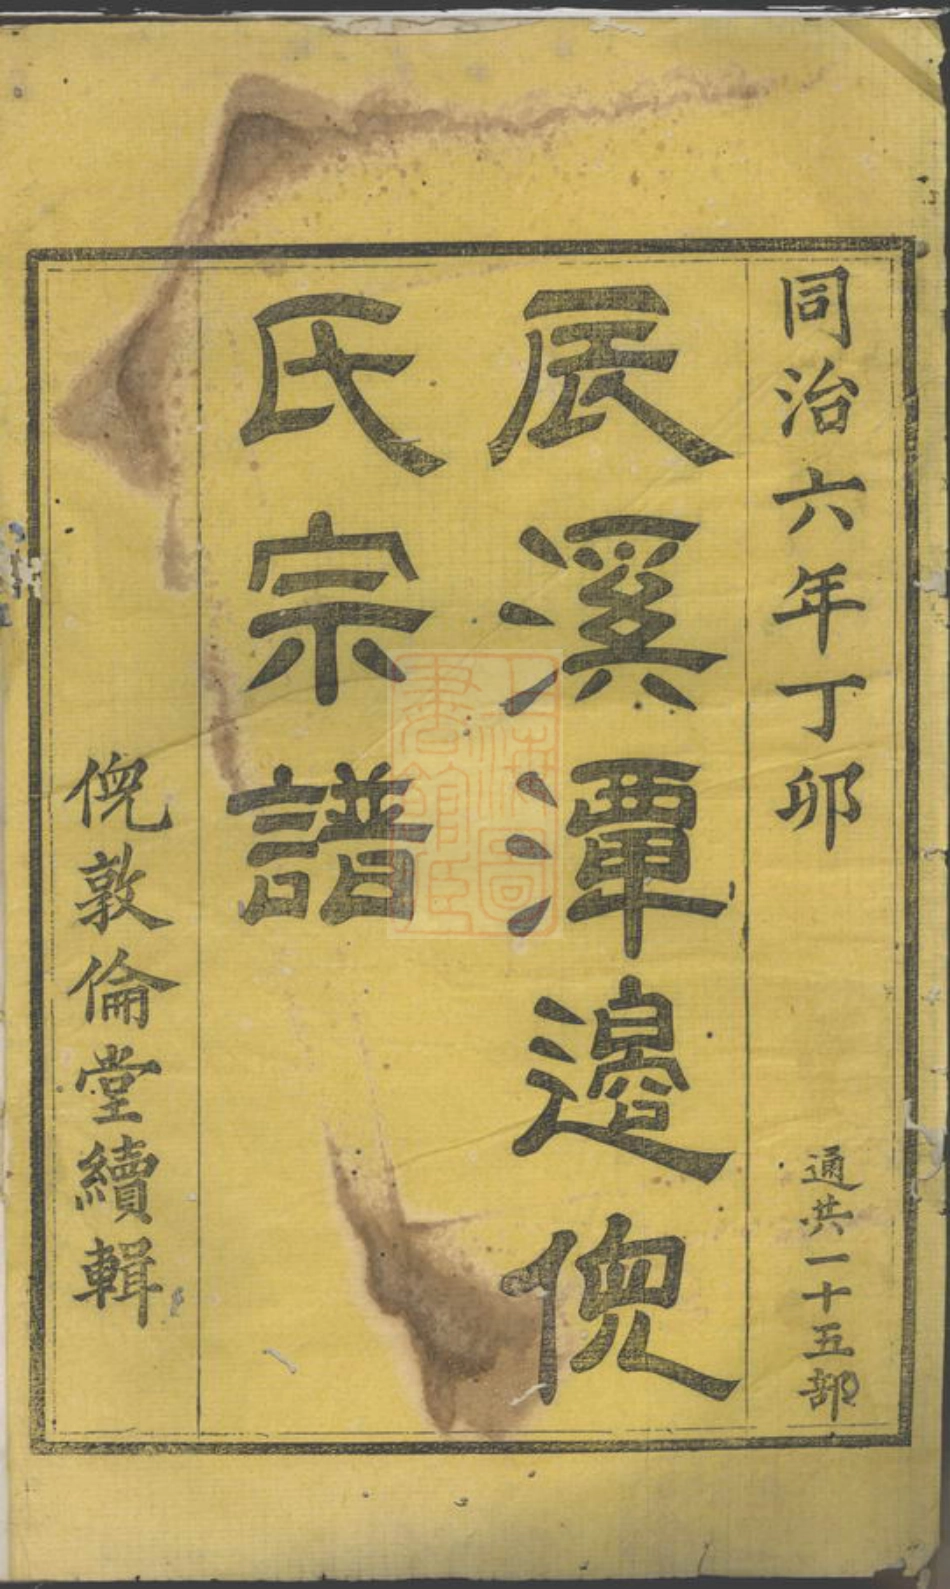 同治六年丁卯 通共一十五部
辰溪潭邊倪
氏宗譜
倪敦倫堂續輯
上海圖
書館藏